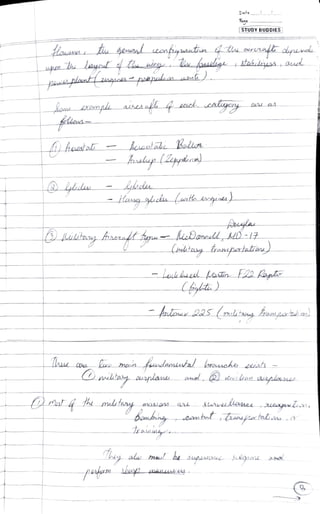 Date
Page
STUDY BUDDIES
However, the general configuration of the aircraft depend
upon the layout of the wing, the fuselage, stabilizers, and
power plant (engines - propulsion units).
Some example aircrafts of each category are as
follows -
① Aerostat - Aerostatic Balloon
- Airship (Zeppelins)
② Glider - Glider
- Hang glider (with engines)
③ Military Aircraft types - McDonnell Douglas, MD-17
(military transportation)
- Lockheed Martin F22 Raptor
(fighter)
- Antonov 225 (military transportation)
These are two main fundamental branches exists -
① military airplanes and, ② civilian airplanes
① most of the military missions are surveillance,
Bombing, combat, transportation,
Training.
They also must be supersonic and
perform